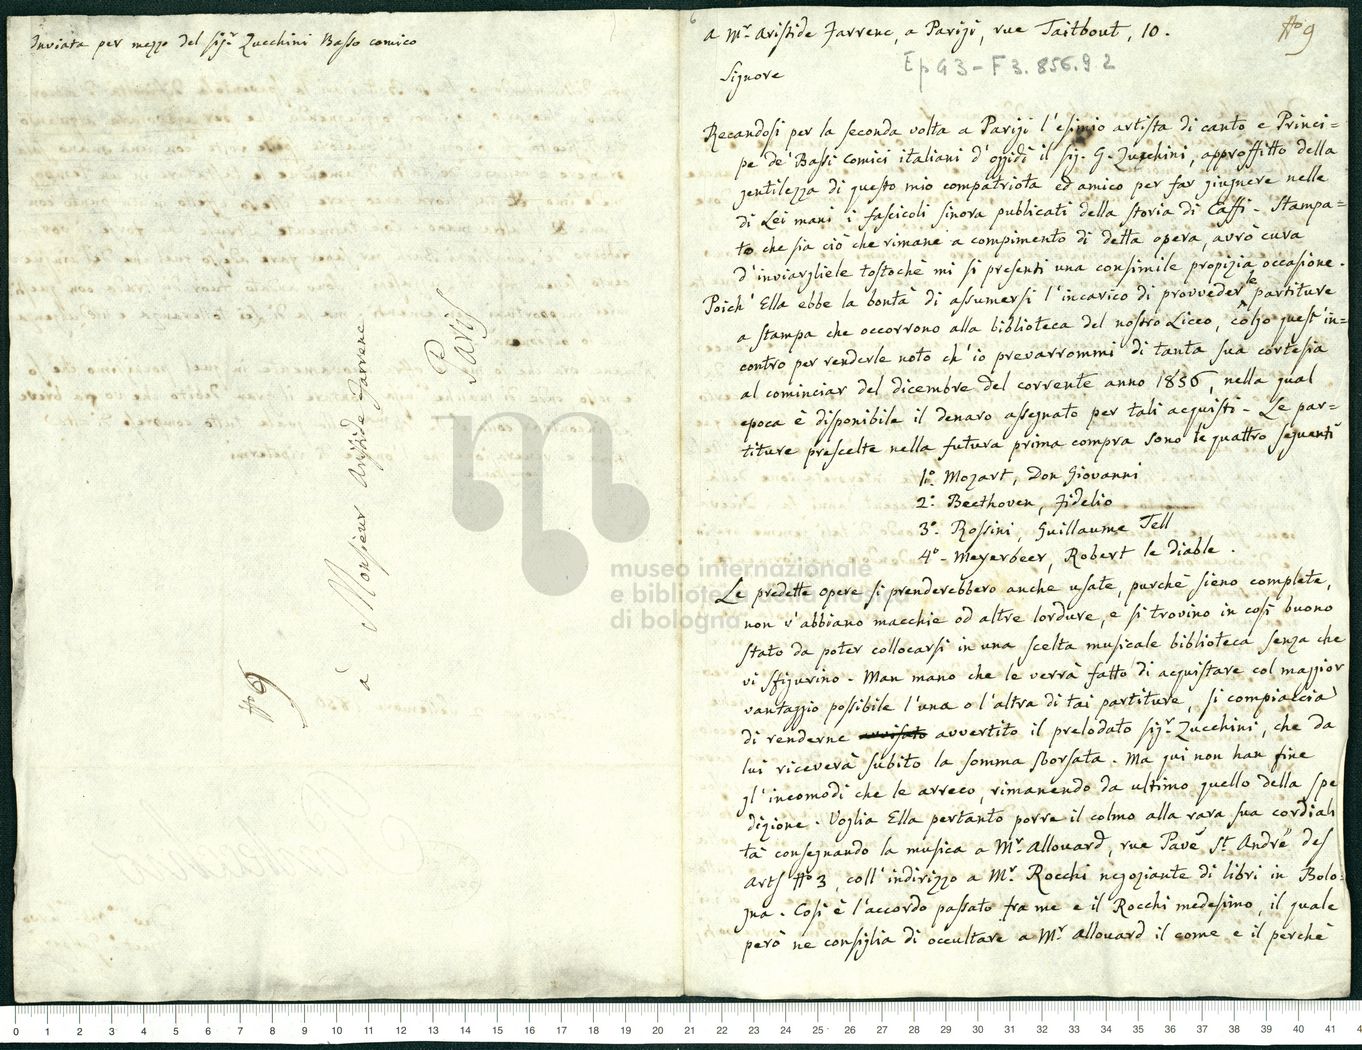 Inviata per mezzo del sig.r Zucchini Basso comico
à Monsieur Aristide Farrenc
Paris
N.o 9
A M.r Aristide Farrenc, a Parigi, rue Taitbout, 10.
N.o 9
Ep 43 - F3.856.9.2
Signore
Recandosi per la seconda volta a Parigi l'esimio artista di canto e Princi=
pe de' Bassi comici italiani d'oggidì il sig. G. Zucchini, approffitto della
gentilezza di questo mio compatriota ed amico per far giugnere nelle
di Lei mani i fascicoli sinora publicati della storia di Caffi. Stampa=
to che sia ciò che rimane a compimento di detta opera, avrò cura
d'inviargliele tostochè mi si presenti una consimile propizia occasione.
Poich' Ella ebbe la bontà di assumersi l'incarico di provveder le partiture
a stampa che occorrono alla biblioteca del nostro Liceo, colgo quest'in=
contro per renderle noto ch'io prevarrommi di tanta sua cortesia
al cominciar del dicembre del corrente anno 1856, nella qual
epoca è disponibile il denaro assegnato per tali acquisti. Le par=
titure prescelte nella futura prima compra sono le quattro seguenti
1.o Mozart, Don Giovanni
2.o Beethoven, Fidelio
3.o Rossini, Guillaume Tell
4.o - Meyerbeer, Robert le diable.
Le predette opere si prenderebbero anche usate, purchè sieno complete,
non v'abbiano macchie od altre lordure, e si trovino in così buono
stato da poter collocarsi in una scelta musicale biblioteca senza che
vi sfigurino. Man mano che le verrà fatto di acquistare col maggior
vantaggio possibile l'una o l'altra di tai partiture, si compiaccia
di renderne avvisato avvertito il prelodato sig.r Zucchini, che da
lui riceverà subito la somma sborsata. Ma qui non han fine
gl'incomodi che le arreco, rimanendo da ultimo quello della spe
dizione. Voglia Ella pertanto porre il colmo alla rara sua cordiali
tà consegnando la musica a M.r Allouard, rue Pavé S.t André des
Arts N.o 3, coll'indirizzo a M.r Rocchi negoziante di libri in Bolo=
gna. Così è l'accordo passato fra me e il Rocchi medesimo, il quale
però ne consiglia di occultare a M.r Allouard il come e il perchè
museo internazionale
e biblioteca della musica
di bologna
0 1 2 3 4 5 6 7 8 9 10 11 12 13 14 15 16 17 18 19 20 21 22 23 24 25 26 27 28 29 30 31 32 33 34 35 36 37 38 39 40 41